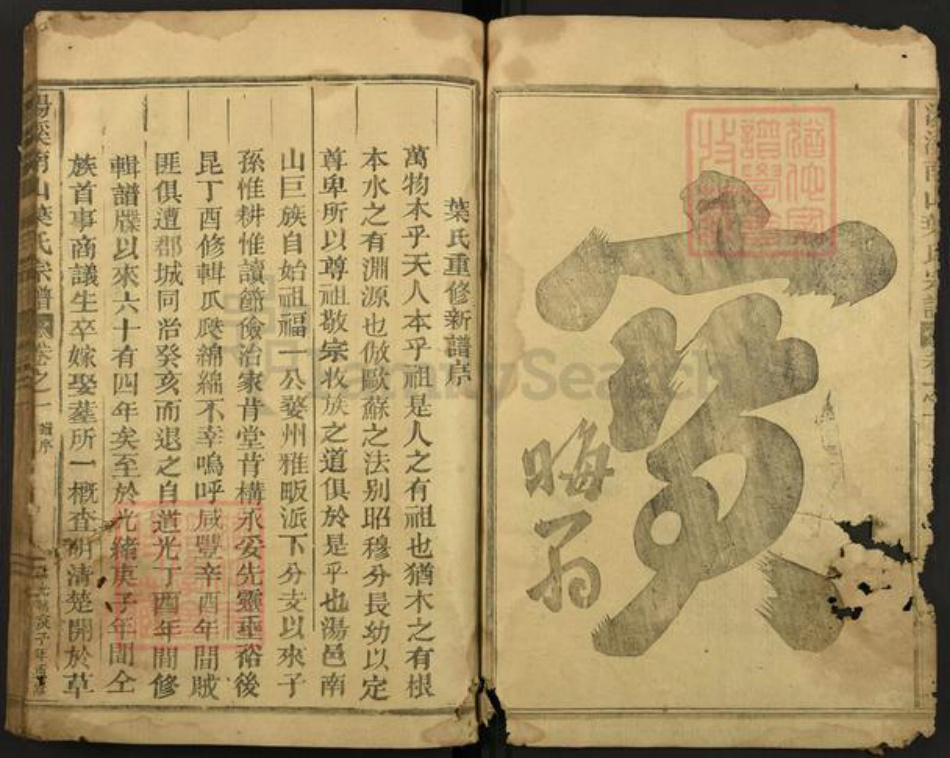 寶
晦翁
葉氏重修新譜序
萬物本乎天人本乎祖是人之有祖也猶木之有根
本水之有淵源也倣歐蘇之法别昭穆分長幼以定
尊卑所以尊祖敬宗收族之道俱於是乎也湯邑南
山巨族自始祖福一公婺州雅畈派下分支以來子
孫惟耕惟讀節儉治家肯堂肯構永妥先靈垂裕後
昆丁酉修輯瓜瓞綿綿不幸嗚呼咸豐辛酉年間賊
匪俱遭郡城同治癸亥而退之自道光丁酉年間修
輯譜牒以來六十有四年矣至於光緒庚子年間仝
族首事商議生卒嫁娶墓所一概查明清楚開於草
湯溪南山葉氏宗譜 卷之一 譜序 光緒庚子年重修
FamilySearch